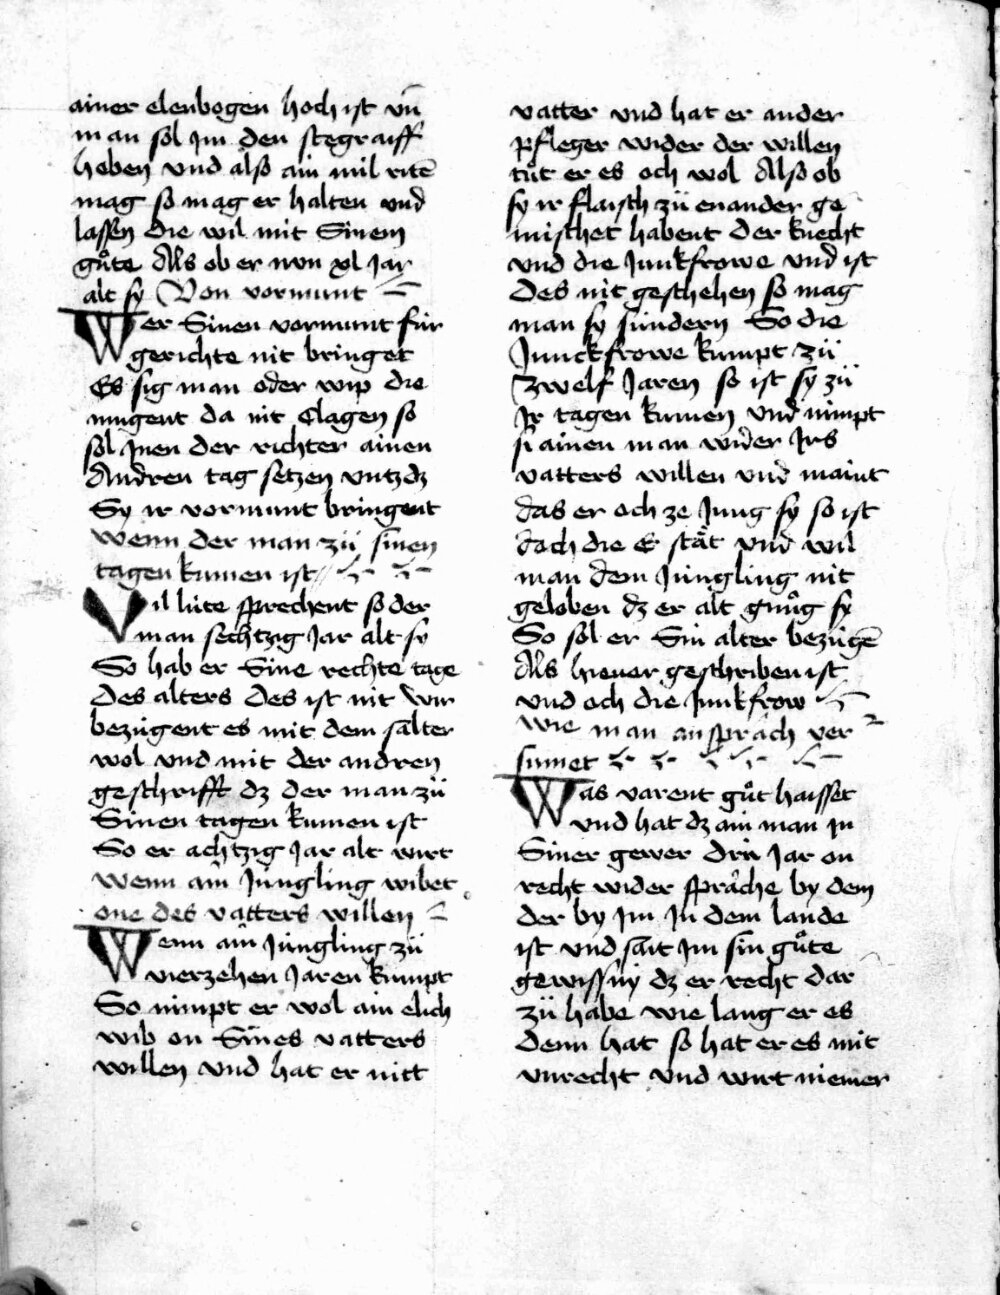 ainer elenbogen hoch ist vn̄
man sol im den stegraiff
heben vnd also ain mil ritē
mag so mag er halten vnd
lassen die wil mit Sinem
gůte Als ob er nvn xl Jar
alt sy Von vormunt
Wer Sinen vormunt für
gerichte nit bringet
Es sig man oder wip die
mugent da nit Clagen so
sol Jnen der richter ainen
Andren tag setzen vntz dz
Sy ir vormunt bringent
wenn der man zü sinen
tagen kumen ist
Vil lüte sprechent so der
man sechtzig Jar alt sy
So hab er Sine rechte tage
Des alters Des ist nit wir
bezügent es mit dem salter
wol vnd mit der andren
geschrifft dz der man zü
Sinen tagen kumen ist
So er achtzig Jar alt wirt
wenn ain Jüngling wibet
one des vatters willen
Wenn ain Jüngling zü
vierzehen Jaren kumpt
So nimpt er wol ain elich
wib on Sines vatters
willen vnd hat er nitt
vatter vnd hat er ander
pfleger wider der willen
tůt er es och wol Also ob
sy ir flaisch zü enander ge
mischet habent der knecht
vnd die Junkfrowe vnd ist
Des nit geschehen so mag
man sy sündern So die
Junckfrowe kumpt zü
zwelf Jaren so ist sy zü
Jr tagen kumen vnd nimpt
si ainen man wider Jrs
vatters willen vnd maint
das er och ze Jung sy so ist
doch die E stät vnd wil
man dem Jüngling nit
geloben dz er alt gnůg sy
So sol er Sin alter bezügē
Als hievor geschriben ist
vnd och die Junkfrow
wie man ansprach ver
sumet
Was varent gůt haisset
vnd hat dz ain man in
Siner gewer drü Jar on
recht wider spräche by dem
der by Jm Jn dem lande
ist vnd sait Jm sin gůte
gewissny dz er recht dar
zü habe wie lang er es
denn hat so hat er es mit
vnrecht vnd wirt niemer